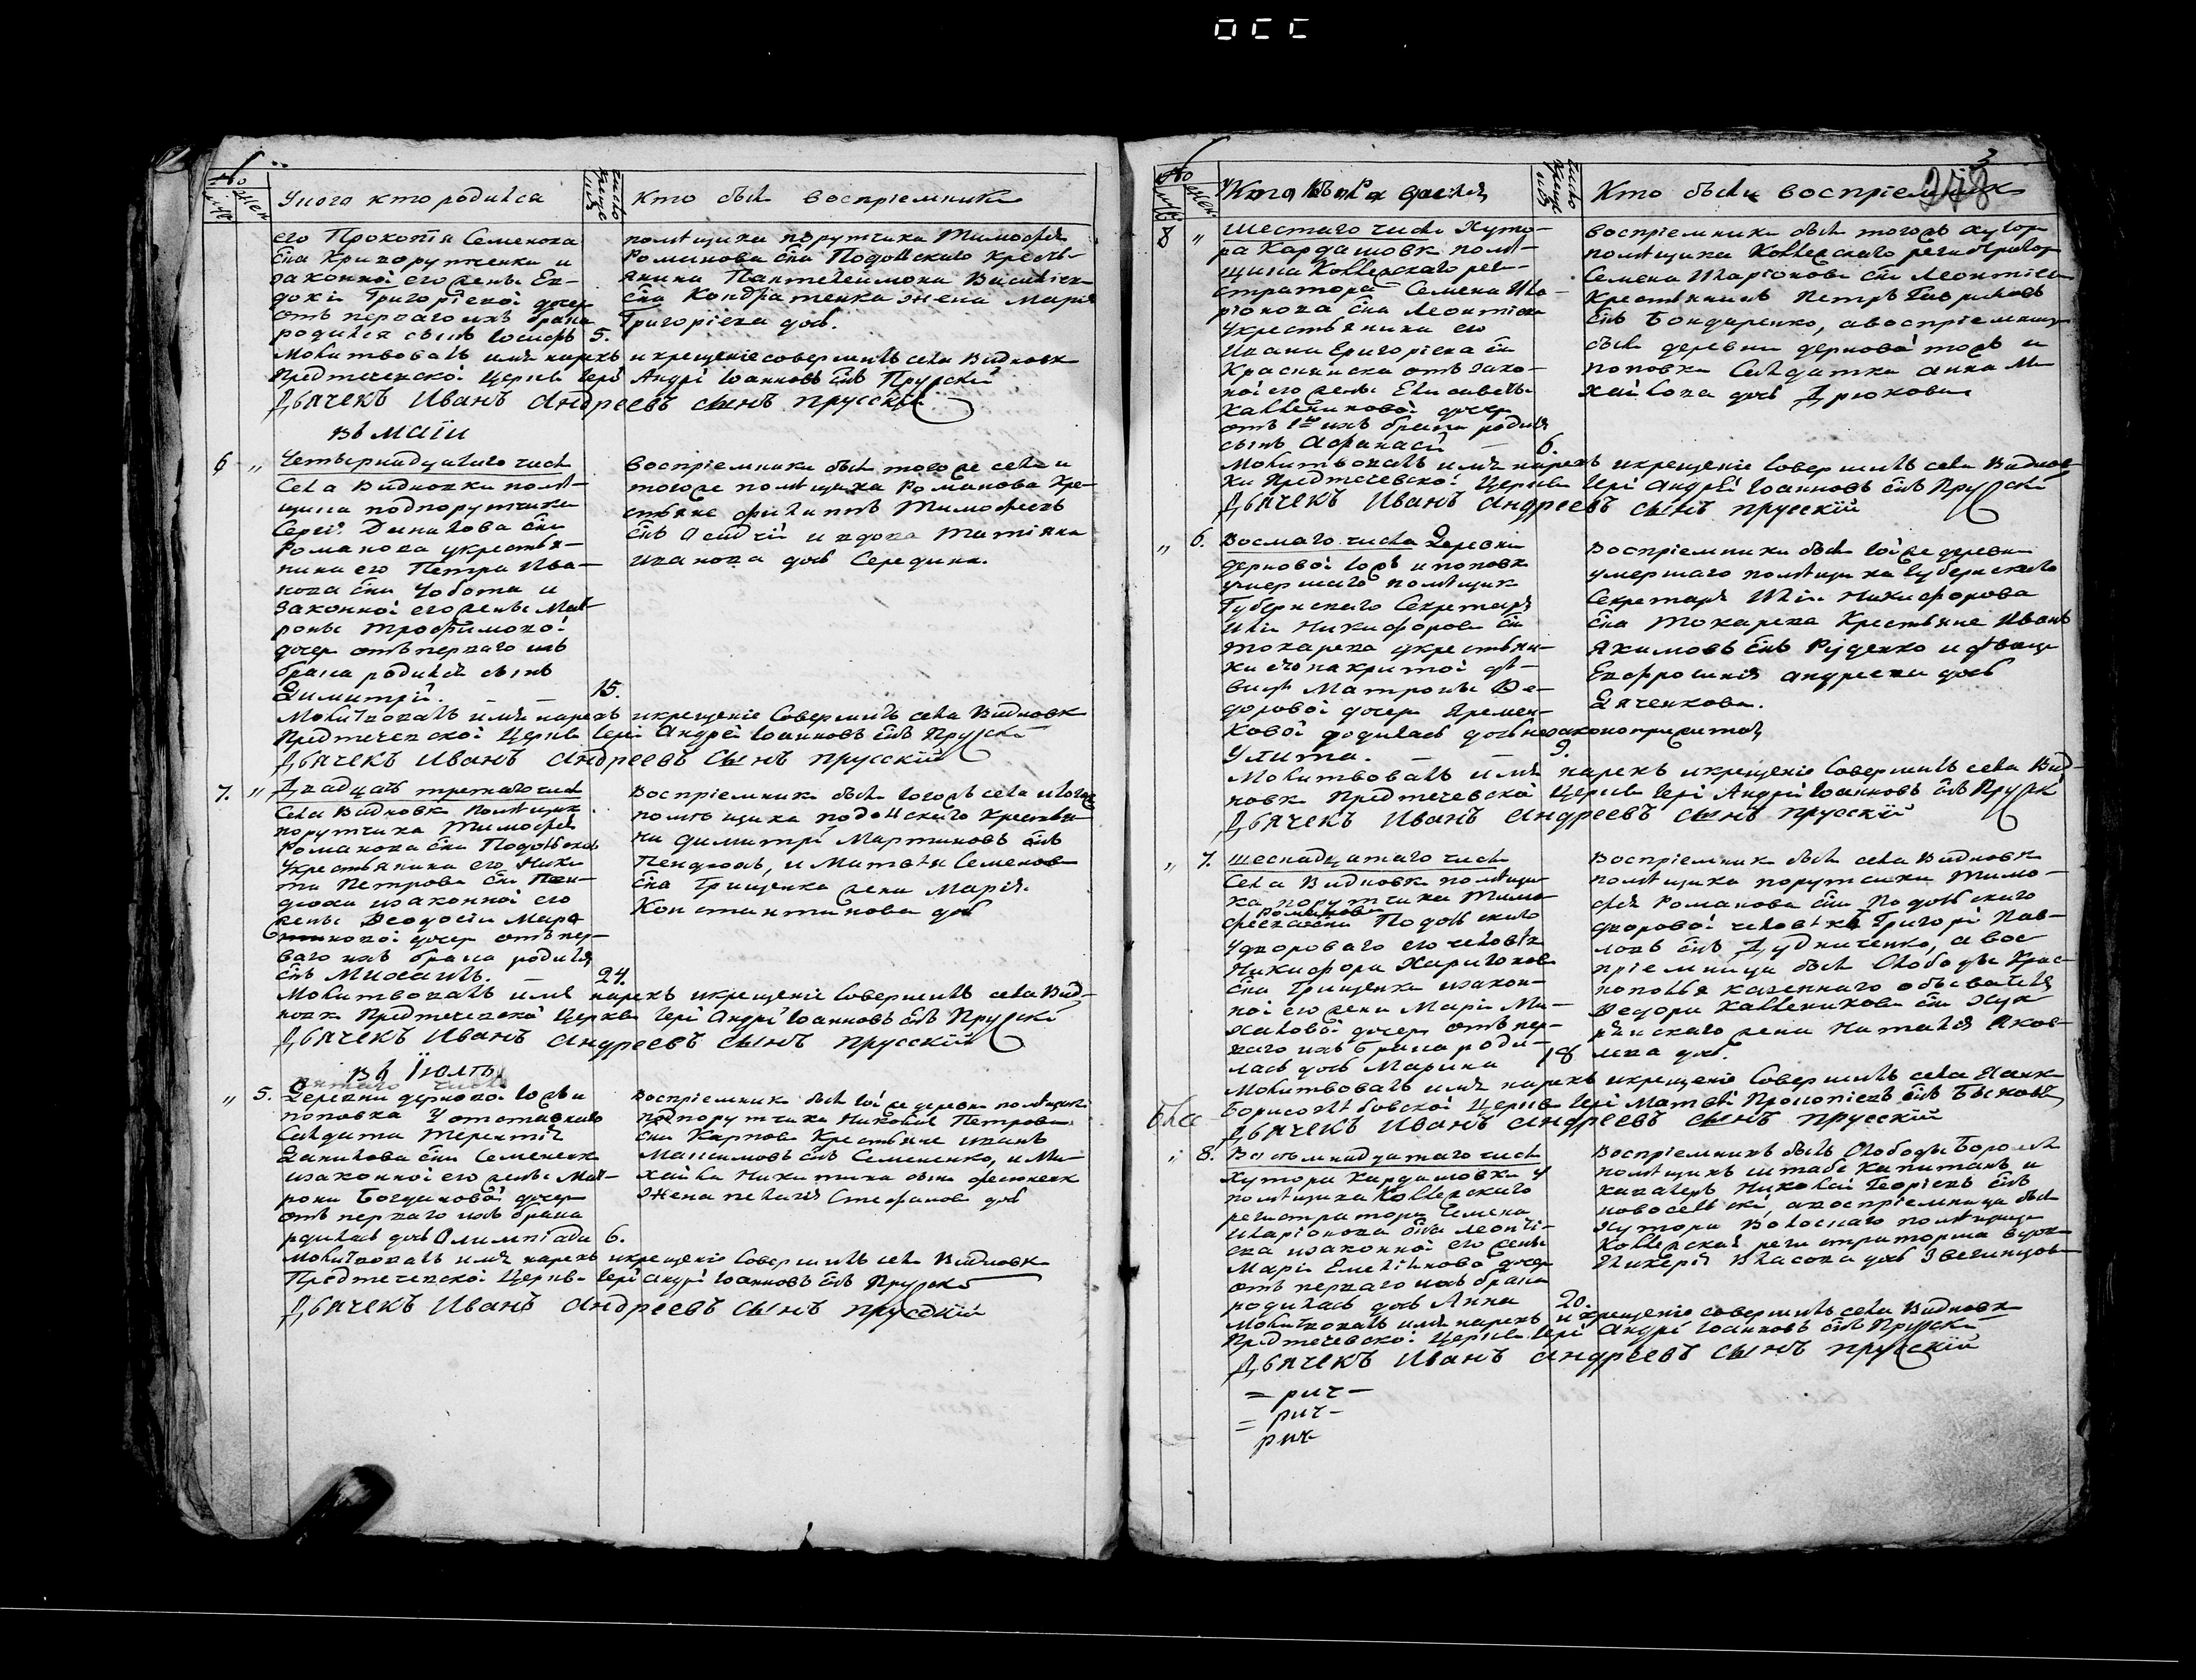 осс
№
муж
жен
У кого кто родился
число крище нія
Кто были восприемники
его Прокопія Семенова
сна Криворутченки и
законной его жены Ев-
докіи Григоріевой дочер
отъ перваго ихъ брака
родился сынъ Іосифъ 5.
помѣщика порутчика Тимофея
Романова сна Подольскаго крестья-
янина Пантелеймона Василіева
сна Кондратенка жена Марія
Григоріева дочь.
Молитвовалъ имя нарекъ и крещеніе совершилъ села Видновк
Предтечевской Церкви Іерей Андрей Іоанновъ снъ Прускій
Дьячекъ Иванъ Андреевъ сынъ прусскій
въ маіи
6 „ Четырнадцатаго числа
села Видновки помѣ-
щика подпорутчика
Сергѣя Данилова сна
Романова у крестья-
нина его Петра Ива-
нова сна Чобота и
законной его жены Мат-
роны Трофимовой
дочер отъ перваго ихъ
брака родился сынъ
Димитрій. — — 15.
Восприемники были того же села и
того же помѣщика Романова кре-
стьяне Филиппъ Тимофеевъ
снъ и вдова Татіяна
Иванова дочь Середина.
Молитвовалъ имя нарекъ и крещеніе совершилъ села Видновк
Предтечевской Церкви Іерей Андрей Іоанновъ снъ Прускій
Дьячекъ Иванъ Андреевъ сынъ прусскій
7. „ Двадцать третаго числа
села Видновк помѣщик
порутчика Тимофея
Романова сна Подольскаго
у крестьянина его Ники
ты Петрова сна Пен-
дюхи и законной его
жены Феодосіи Март
иновой дочер отъ пер-
ваго ихъ брака родился
снъ Михаилъ. — 24.
Восприемник были того жъ села и того
помѣщика Подольскаго крестья-
ни Димитрій Мартиновъ снъ
Пендюхъ, и Матвѣя Семенова
сна Грищенка жена Марія.
Константинова дочь
Молитвовалъ имя нарекъ и крещеніе совершилъ села Вид-
новк Предтечевской Церкви Іерей Андрей Іоанновъ снъ Прускі
Дьячекъ Иванъ Андреевъ сынъ прусскій
въ Іюлѣ
Пятаго числа
„ 5. деревни дерновой тожъ и
поповка у отставнаго
салдата Терентія
Данилова сна Семененк
и законной его жены Мат-
роны Богдановой дочер
отъ перваго ихъ брака
родилась дочь Олимпіада 6.
Восприемник были той же деревни помѣщика
подпорутчика Николая Петрова
сна Карпова крестьяне Иванъ
Максимовъ снъ Семененко, и Ми-
хайла Никитина сына
жена Пелагія Стефанова дочь
Молитвовалъ имя нарекъ и крещеніе совершилъ села Видновк
Предтечевской Церкви Іерей Андрей Іоанновъ снъ Прускій
Дьячекъ Иванъ Андреевъ сынъ прусскій
3
278
№
муж
жен
У Кого Кто Родился
число крище нія
Кто были восприемник
8 „ шестаго числа Хуто-
ра Кардашовк помѣ-
щика Коллежскаго реги-
стратора Семена Ила-
ріонова сна Леонтіева
у крестьянина его
Ивана Григоріева сн
Краснянска отъ зако-
ной его жены Елисаветы
Каллениковой дочер
отъ 1го ихъ брака родился
сынъ Афанасій — 6.
восприемники были тогожъ хутор
помѣщика Коллежскаго регистратор
Семена Иларіонова сна Леонтіева
крестьянинъ Петръ Гавриловъ
снъ Бондаренко, а восприемница
была деревни дерновой тожъ и
поповка салдатка Анна Ми
хайлова дочь Дрюкова
Молитвовалъ имя нарекъ и крещеніе совершилъ села Виднов
ки Предтечевской Церкви Іерей Андрей Іоанновъ снъ Прускі
Дьячекъ Иванъ Андреевъ сынъ прусскій
„ 6. Восмаго числа деревни
дерновой тожъ и поповк
умершаго помѣщик
Губернскаго Секретаря
Иліи Никифорова сн
Токарева у крестьян-
ки его накритой дѣ-
вицы Матроны Фе-
доровой дочер Яремен-
ковой родилась дочь незаконоприжитая
Улита. — 9.
Восприемники были той же деревни
умершаго помѣщика Губернскаго
Секретаря Иліи Никифорова
сна Токарева крестьяне Иванъ
Якимовъ снъ Руденко и дѣвица
Евфросинія Андреева дочь
Дяченкова.
Молитвовалъ имя нарекъ и крещеніе совершилъ села Вид-
новк Предтечевской Церкви Іерей Андрей Іоанновъ снъ Прускі
Дьячекъ Иванъ Андреевъ сынъ прусскій
„ 7. шеснадцатаго числа
села Видновк помѣщи-
ка порутчика Тимо-
фея Романова сна Подольскаго
у двороваго его человѣк
Никифора Харитонов
сна Грищенка и закон-
ной его жены Маріи Ми-
хайловой дочер отъ пер-
ваго ихъ брака роди-
лась дочь Марина 18
Восприемник были села Видновк
помѣщика порутчика Тимо-
фея Романова сна Подольскаго
дворовой человѣкъ Григорій Пав-
ловъ снъ Дудниченко, а вос
приемница была Слободы Крас-
нополья казеннаго обывателя
Федора Калленикова сна Жук
жена Наталія Яков-
лева дочь.
Молитвовалъ имя нарекъ и крещеніе совершилъ села
Борисоглѣбовской Церкви Іерей Матвѣй Прокопіевъ снъ
Дьячекъ Иванъ Андреевъ сынъ прусскій
„ 8. Восѣмнадцатаго числа
Хутора Кардашовки у
помѣщика Коллежскаго
регистратора Семена
Иларіонова сна Леонті-
ева и законной его жены
Маріи Емеліановой дочер
отъ перваго ихъ брака
родилась дочь Анна 20.
Восприемникъ былъ Слободы Боромли
помѣщикъ штабс капитанъ и
кавалеръ Николай Георгіевъ снъ
Новосельскій, а восприемница была
Хутора помѣщица
Коллежская регистраторша вдова
Гликерія Власова дочь
Молитвовалъ имя нарекъ и крещеніе совершилъ села Видновк
Предтечевской Церкви Іерей Андрей Іоанновъ снъ Прускі
Дьячекъ Иванъ Андреевъ сынъ прусскій